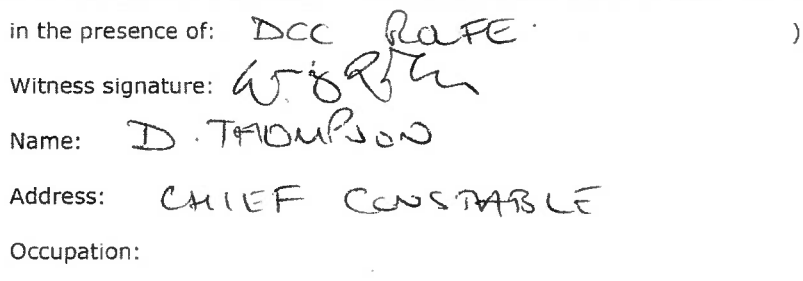 in the presence of: DCC ROLFE. )
Witness signature:
Name: D. THOMPSON
Address: CHIEF CONSTABLE
Occupation: